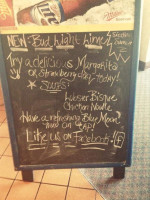 Miller
NEW- Bud Light Lime
Try a delicious Margarita
or Strawberry daq. today!
* Soups *
Lobster Bisque
Chicken Noodle
Have a refreshing Blue Moon
on tap!
Like us on Facebook!